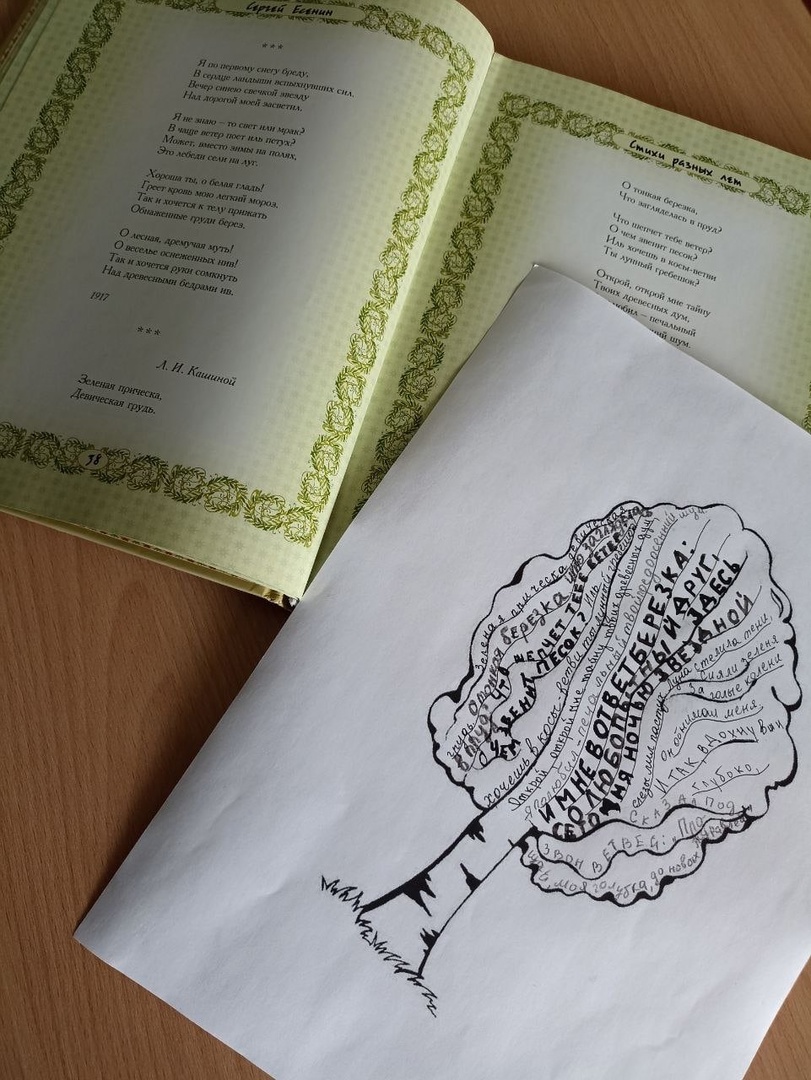 Сергей Есенин
***
Я по первому снегу бреду,
В сердце ландыши вспыхнувших сил.
Вечер синею свечкой звезду
Над дорогой моей засветил.
Я не знаю – то свет или мрак?
В чаще ветер поет иль петух?
Может, вместо зимы на полях,
Это лебеди сели на луг.
Хороша ты, о белая гладь!
Греет кровь мою легкий мороз.
Так и хочется к телу прижать
Обнаженные груди берез.
О лесная, дремучая муть!
О веселье оснеженных нив!
Так и хочется руки сомкнуть
Над древесными бедрами ив.
1917
***
Л. И. Кашиной
Зеленая прическа,
Девическая грудь.
58
Стихи разных лет
О тонкая березка,
Что загляделась в пруд?
Что шепчет тебе ветер?
О чем звенит песок?
Иль хочешь в косы-ветви
Ты лунный гребешок?
Открой, открой мне тайну
Твоих древесных дум,
– печальный
шум.
Зеленая прическа, девическая
грудь. О тонкая березка, что загляделась
в пруд? Что шепчет тебе ветер?
О чем звенит песок? Иль
хочешь в косы-ветви ты лунный гребешок?
Открой, открой мне тайну твоих древесных дум,
я полюбил печальный твой предосенний шум.
И мне в ответ березка:
"О любопытный друг,
Сегодня ночью звездной
здесь
слезы лил пастух. Луна стелила тени,
Сияли зеленя
За голые колени
он обнимал меня.
И так, вдохнувши
глубоко,
Сказал под
звон ветвей: "Про
щай, моя голубка, до новых журавлей"